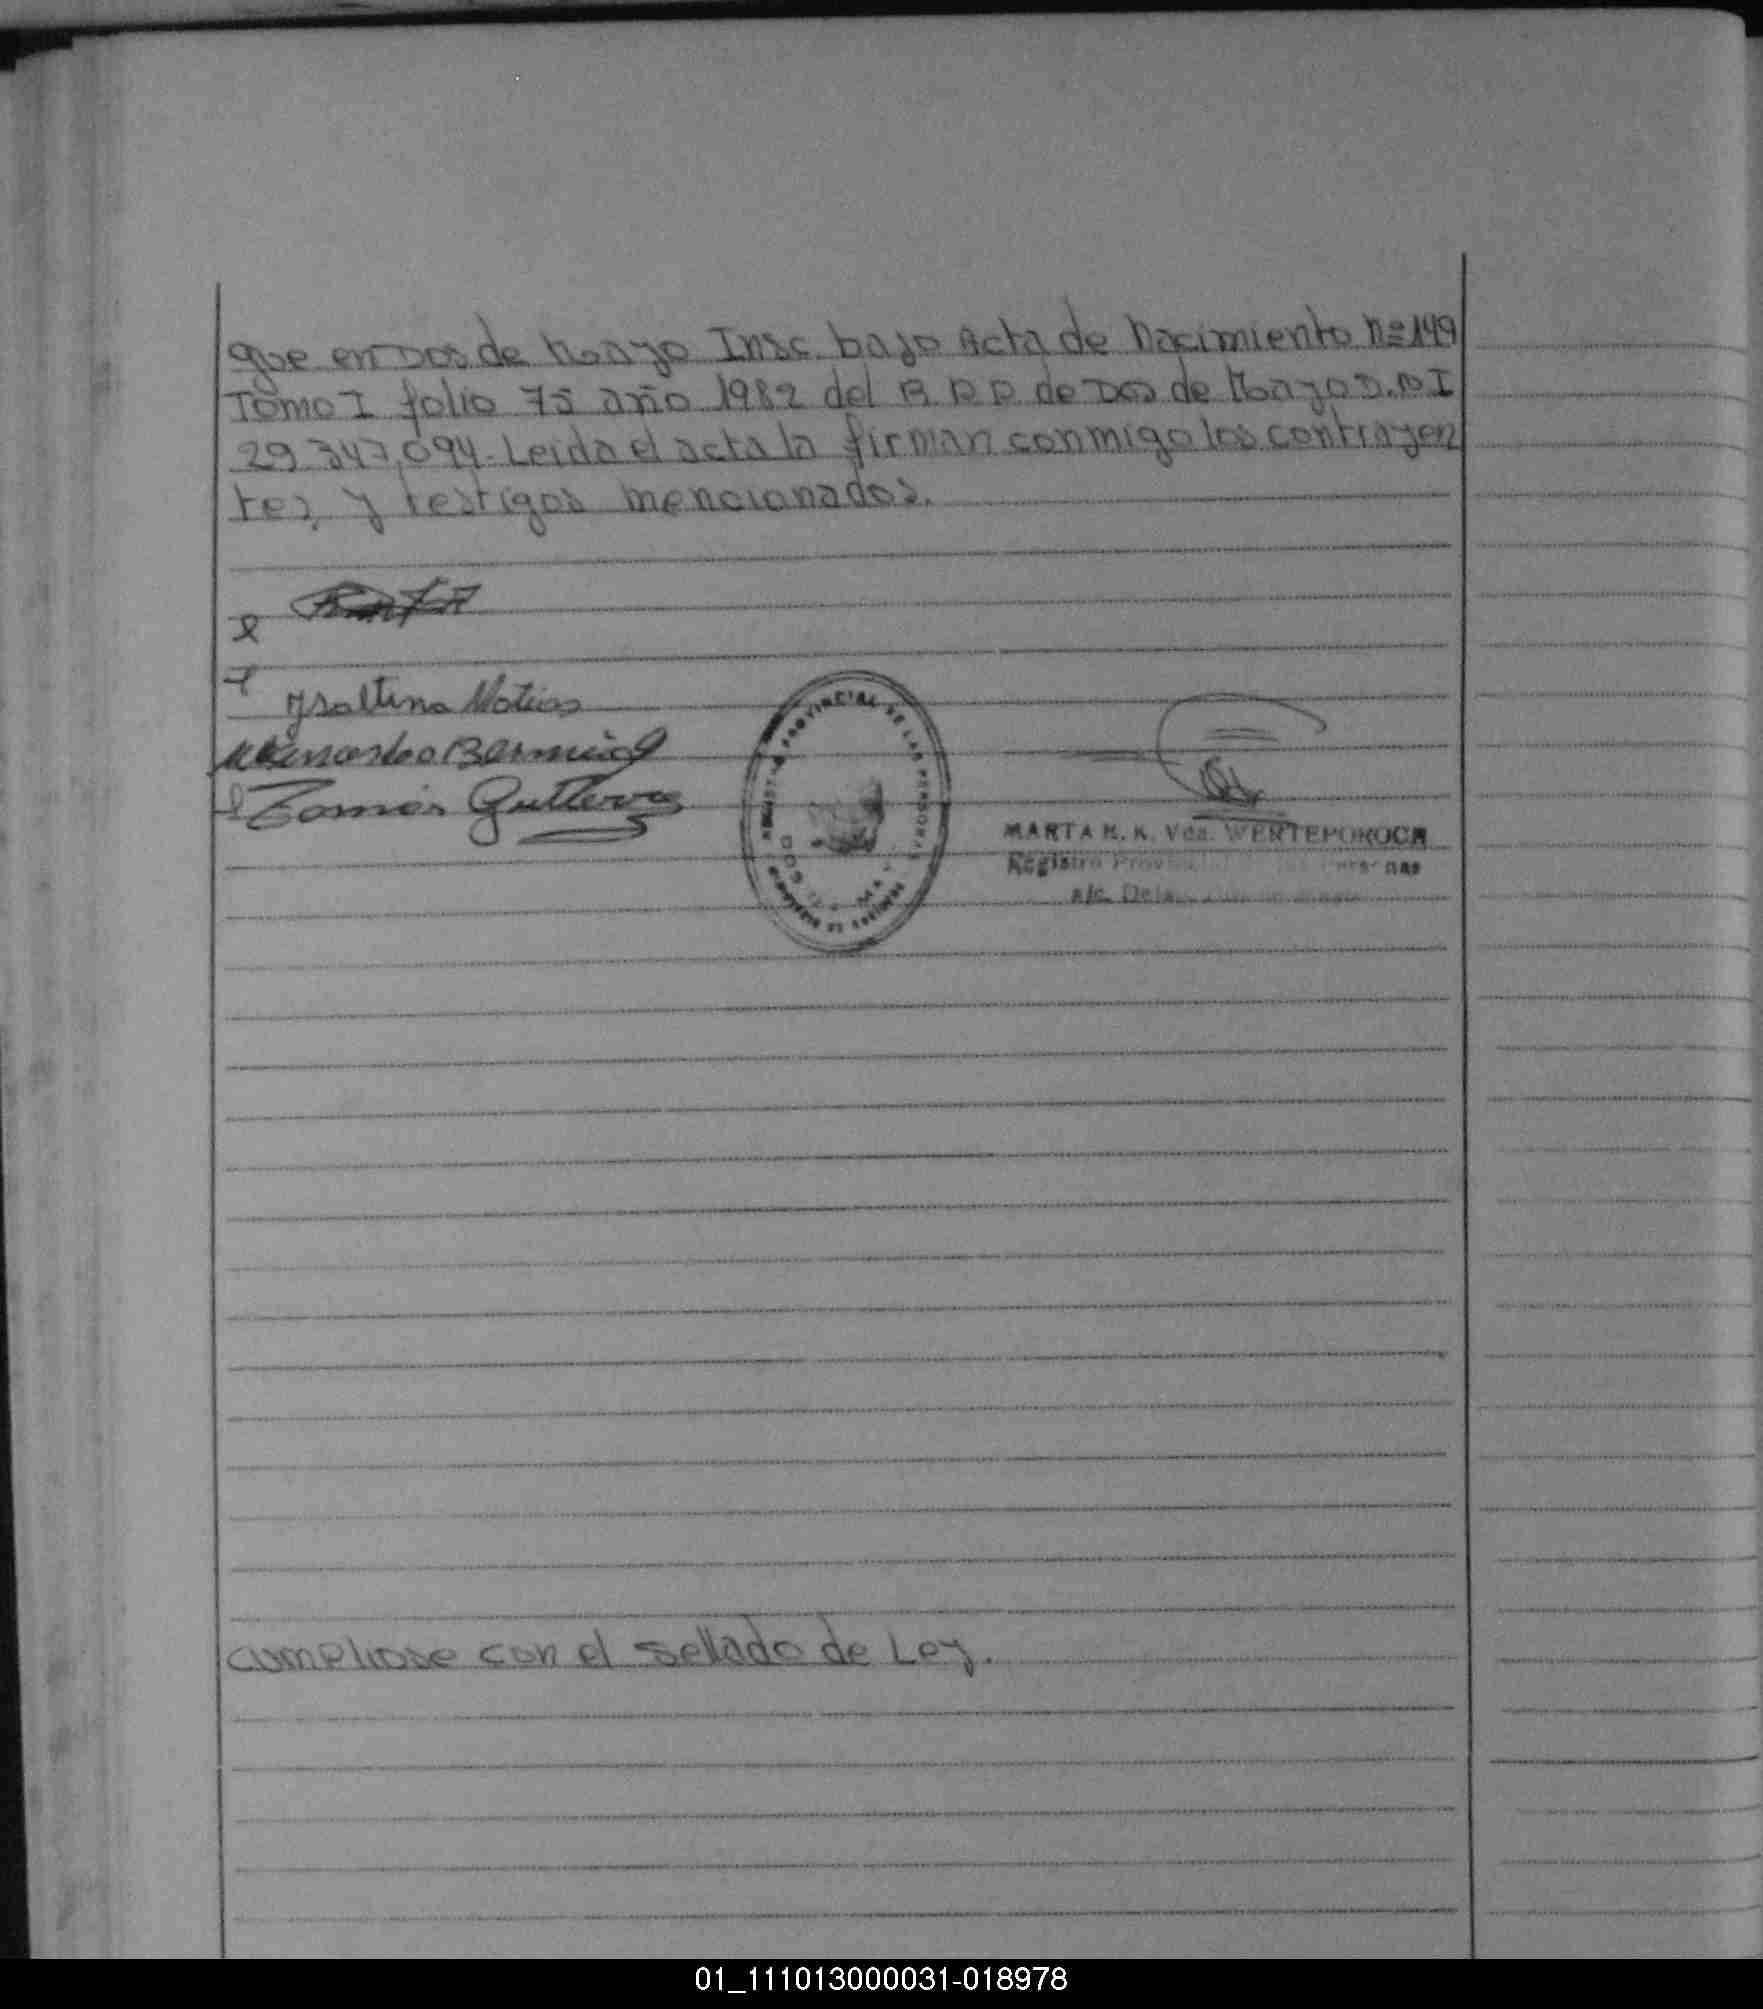 que en Dos de Mayo Insc. bajo Acta de Nacimiento Nº 149
Tomo I folio 75 año 1982 del R P P de Dos de Mayo D.N I
29.347.094. Leida el acta la firman conmigo los contrayen
tes, y testigos mencionados.
Ysaltina Matias
Bermudez
Tomás Gutierrez
REGISTRO PROVINCIAL DE LAS PERSONAS
DOS DE MAYO
PROVINCIA DE MISIONES
MARTA H. K. Vda. WERTEPOROCH
Registro Provincial de las Personas
a/c. Deleg.
cumpliose con el sellado de Ley.
01_111013000031-018978